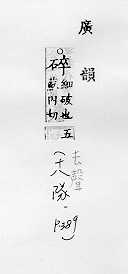 廣韻
碎 細破也 蘇內切 五
去聲
(十八隊.
P.389)